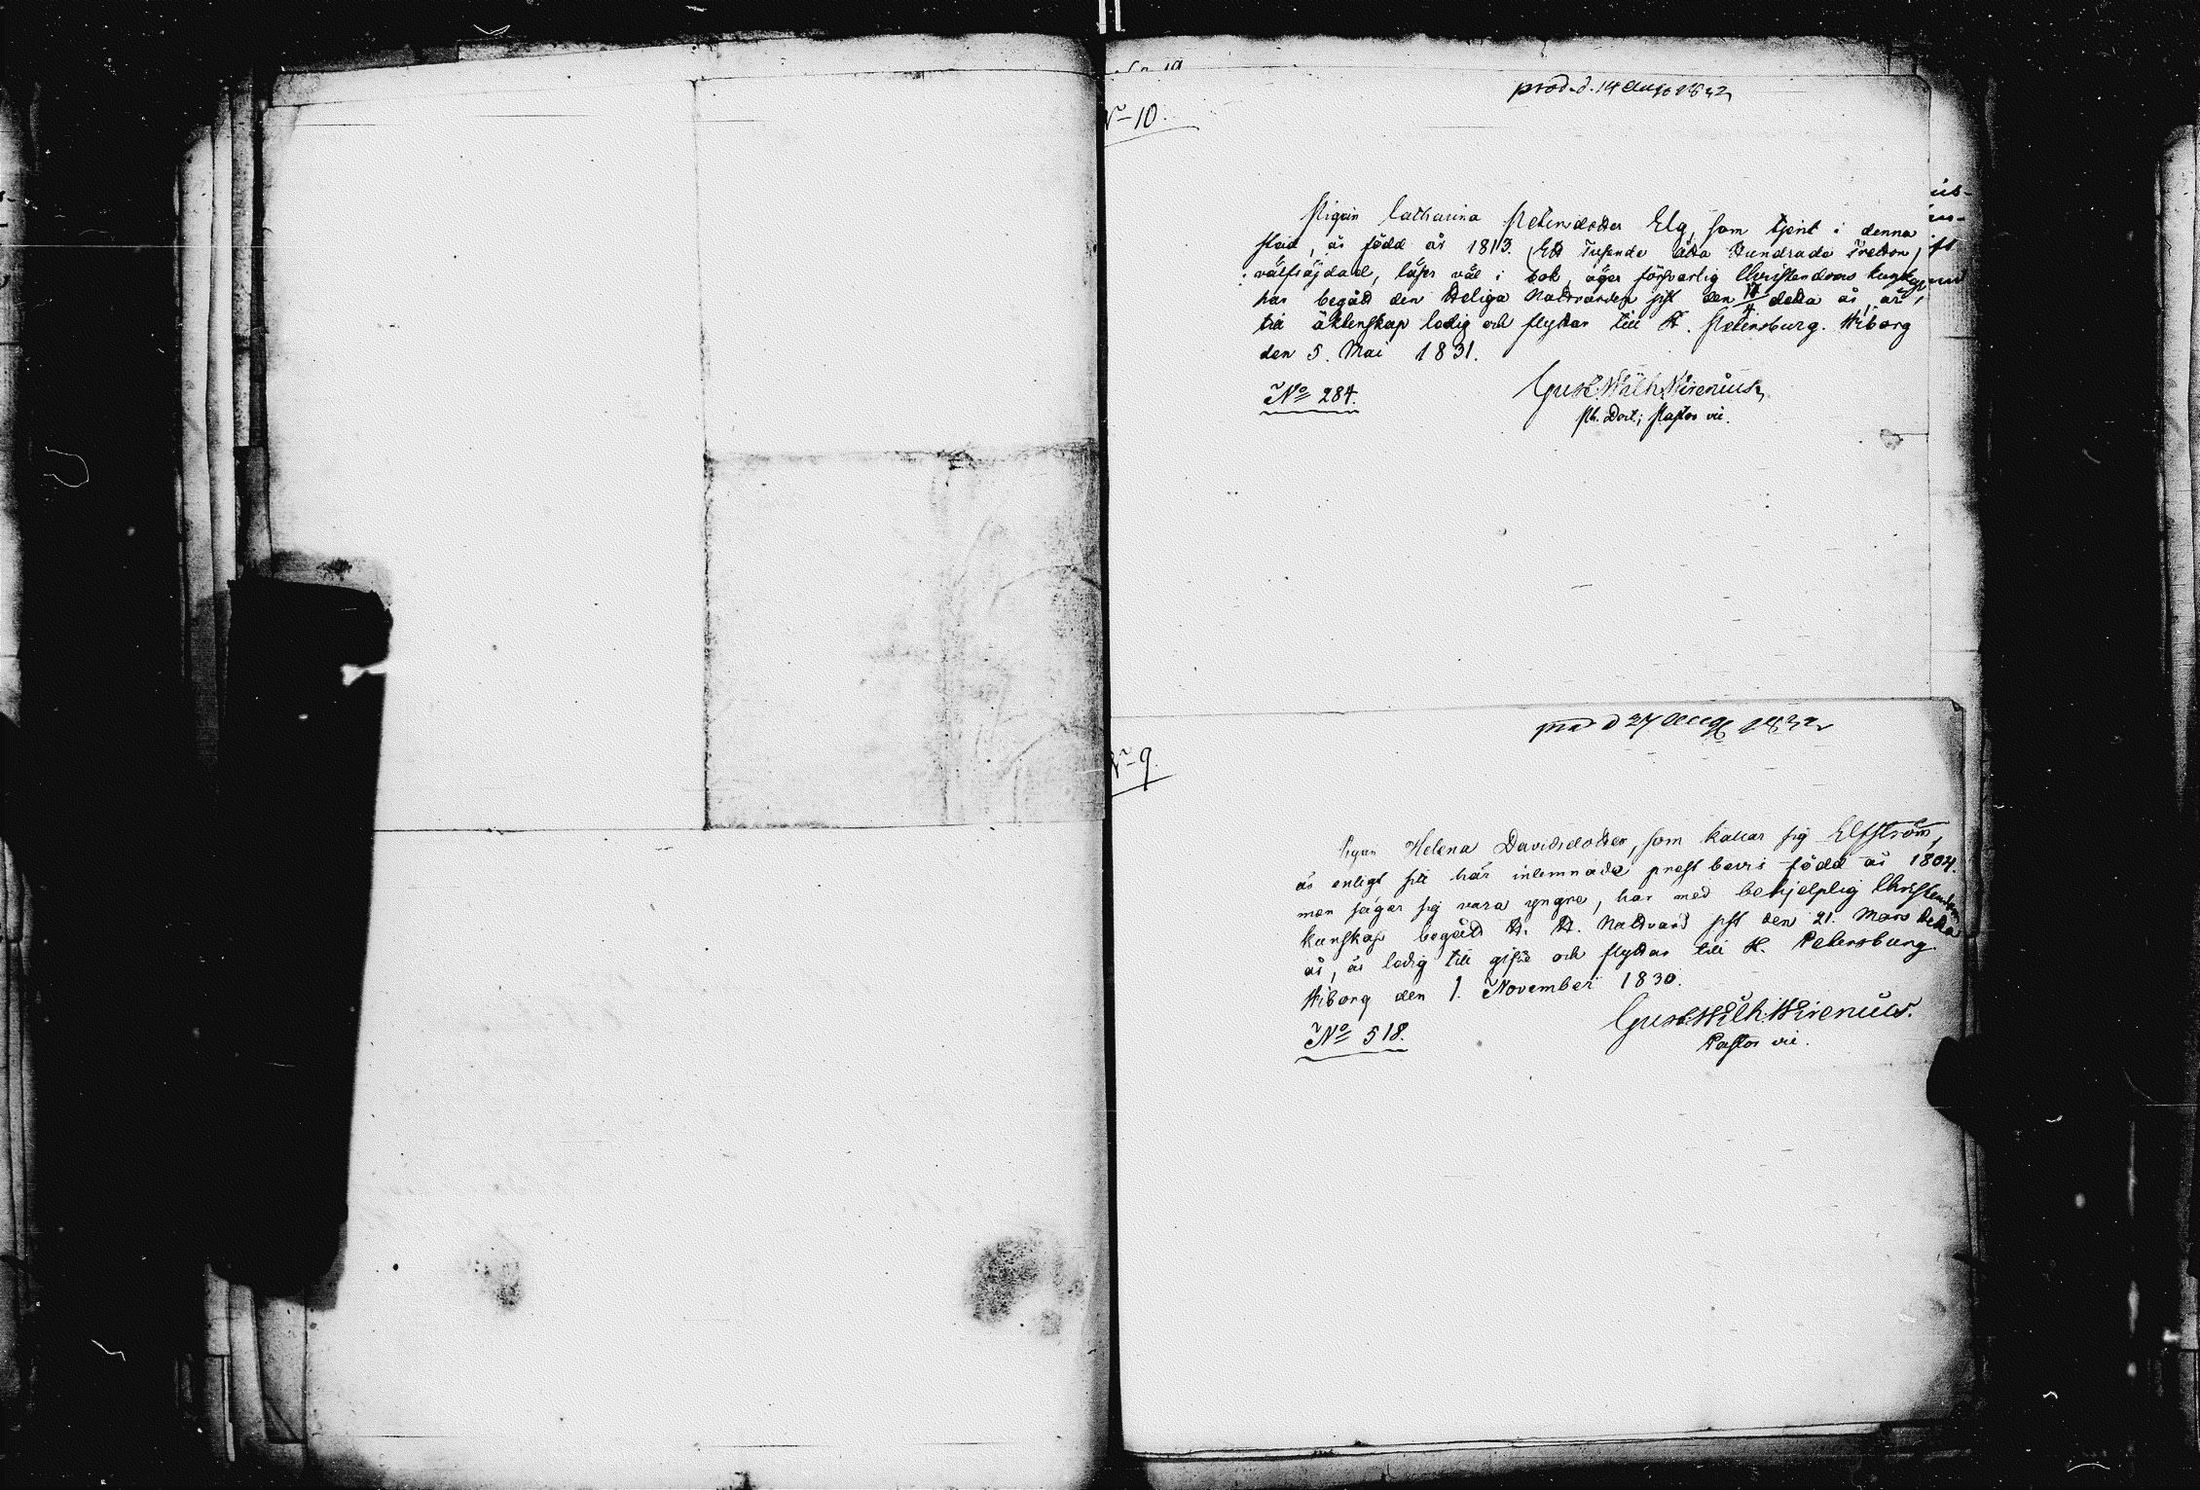 prod. d. 14 Aug 1832
N 10.
Pigan Catharina Petersdotter Elg, som tjent i denna
stad, är född år 1813. (Ett Tusende åtta Hundrade Tretton)
välfräjdad, läser väl i bok, äger försvarlig Christendoms kunskap
har begått den Heliga Nattvarden sist den 17/4 detta år, är
till äktenskap ledig och flyttar till St. Petersburg. Wiborg
den 5. Mai 1831.
No 284.
Gust. Wilh. Wirenius,
Ph. Doct; Pastor vic.
prod d 27 Aug 1832
N 9.
Pigan Helena Davidsdotter, som kallar sig Elfström,
är enligt sitt här inlemnade prest bevis född år 1804.
men säger sig vara yngre, har med behjelplig Christendoms
kunskap begått H. H. Nattvard sist den 21. Mars detta
år, är ledig till gifte och flyttar till St. Petersburg.
Wiborg den 1. November 1830.
No 518.
Gust. Wilh. Wirenius.
Pastor vic.